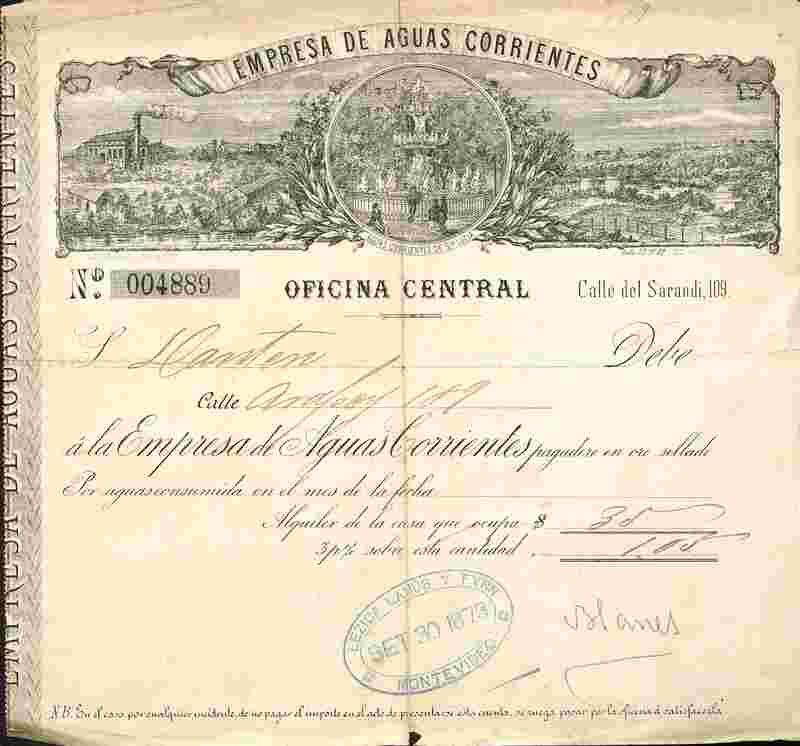 EMPRESA DE AGUAS CORRIENTES
EMPRESA DE AGUAS CORRIENTES
No. 004889
OFICINA CENTRAL
Calle del Sarandi, 109.
S
Debe
Calle Arapey 189
á la Empresa de Aguas Corrientes, pagadero en oro sellado
Por aguas consumida en el mes de la fecha
Alquiler de la casa que ocupa $ 35
3 p% sobre esta cantidad „ 1,05
LEZICA LANUS Y FYNN
SET 30 1873
MONTEVIDEO
Blanes
N.B. En el caso por cualquier incidente, de no pagar el importe en el acto de presentarse esta cuenta, se ruega pasar por la oficina á satisfacerla